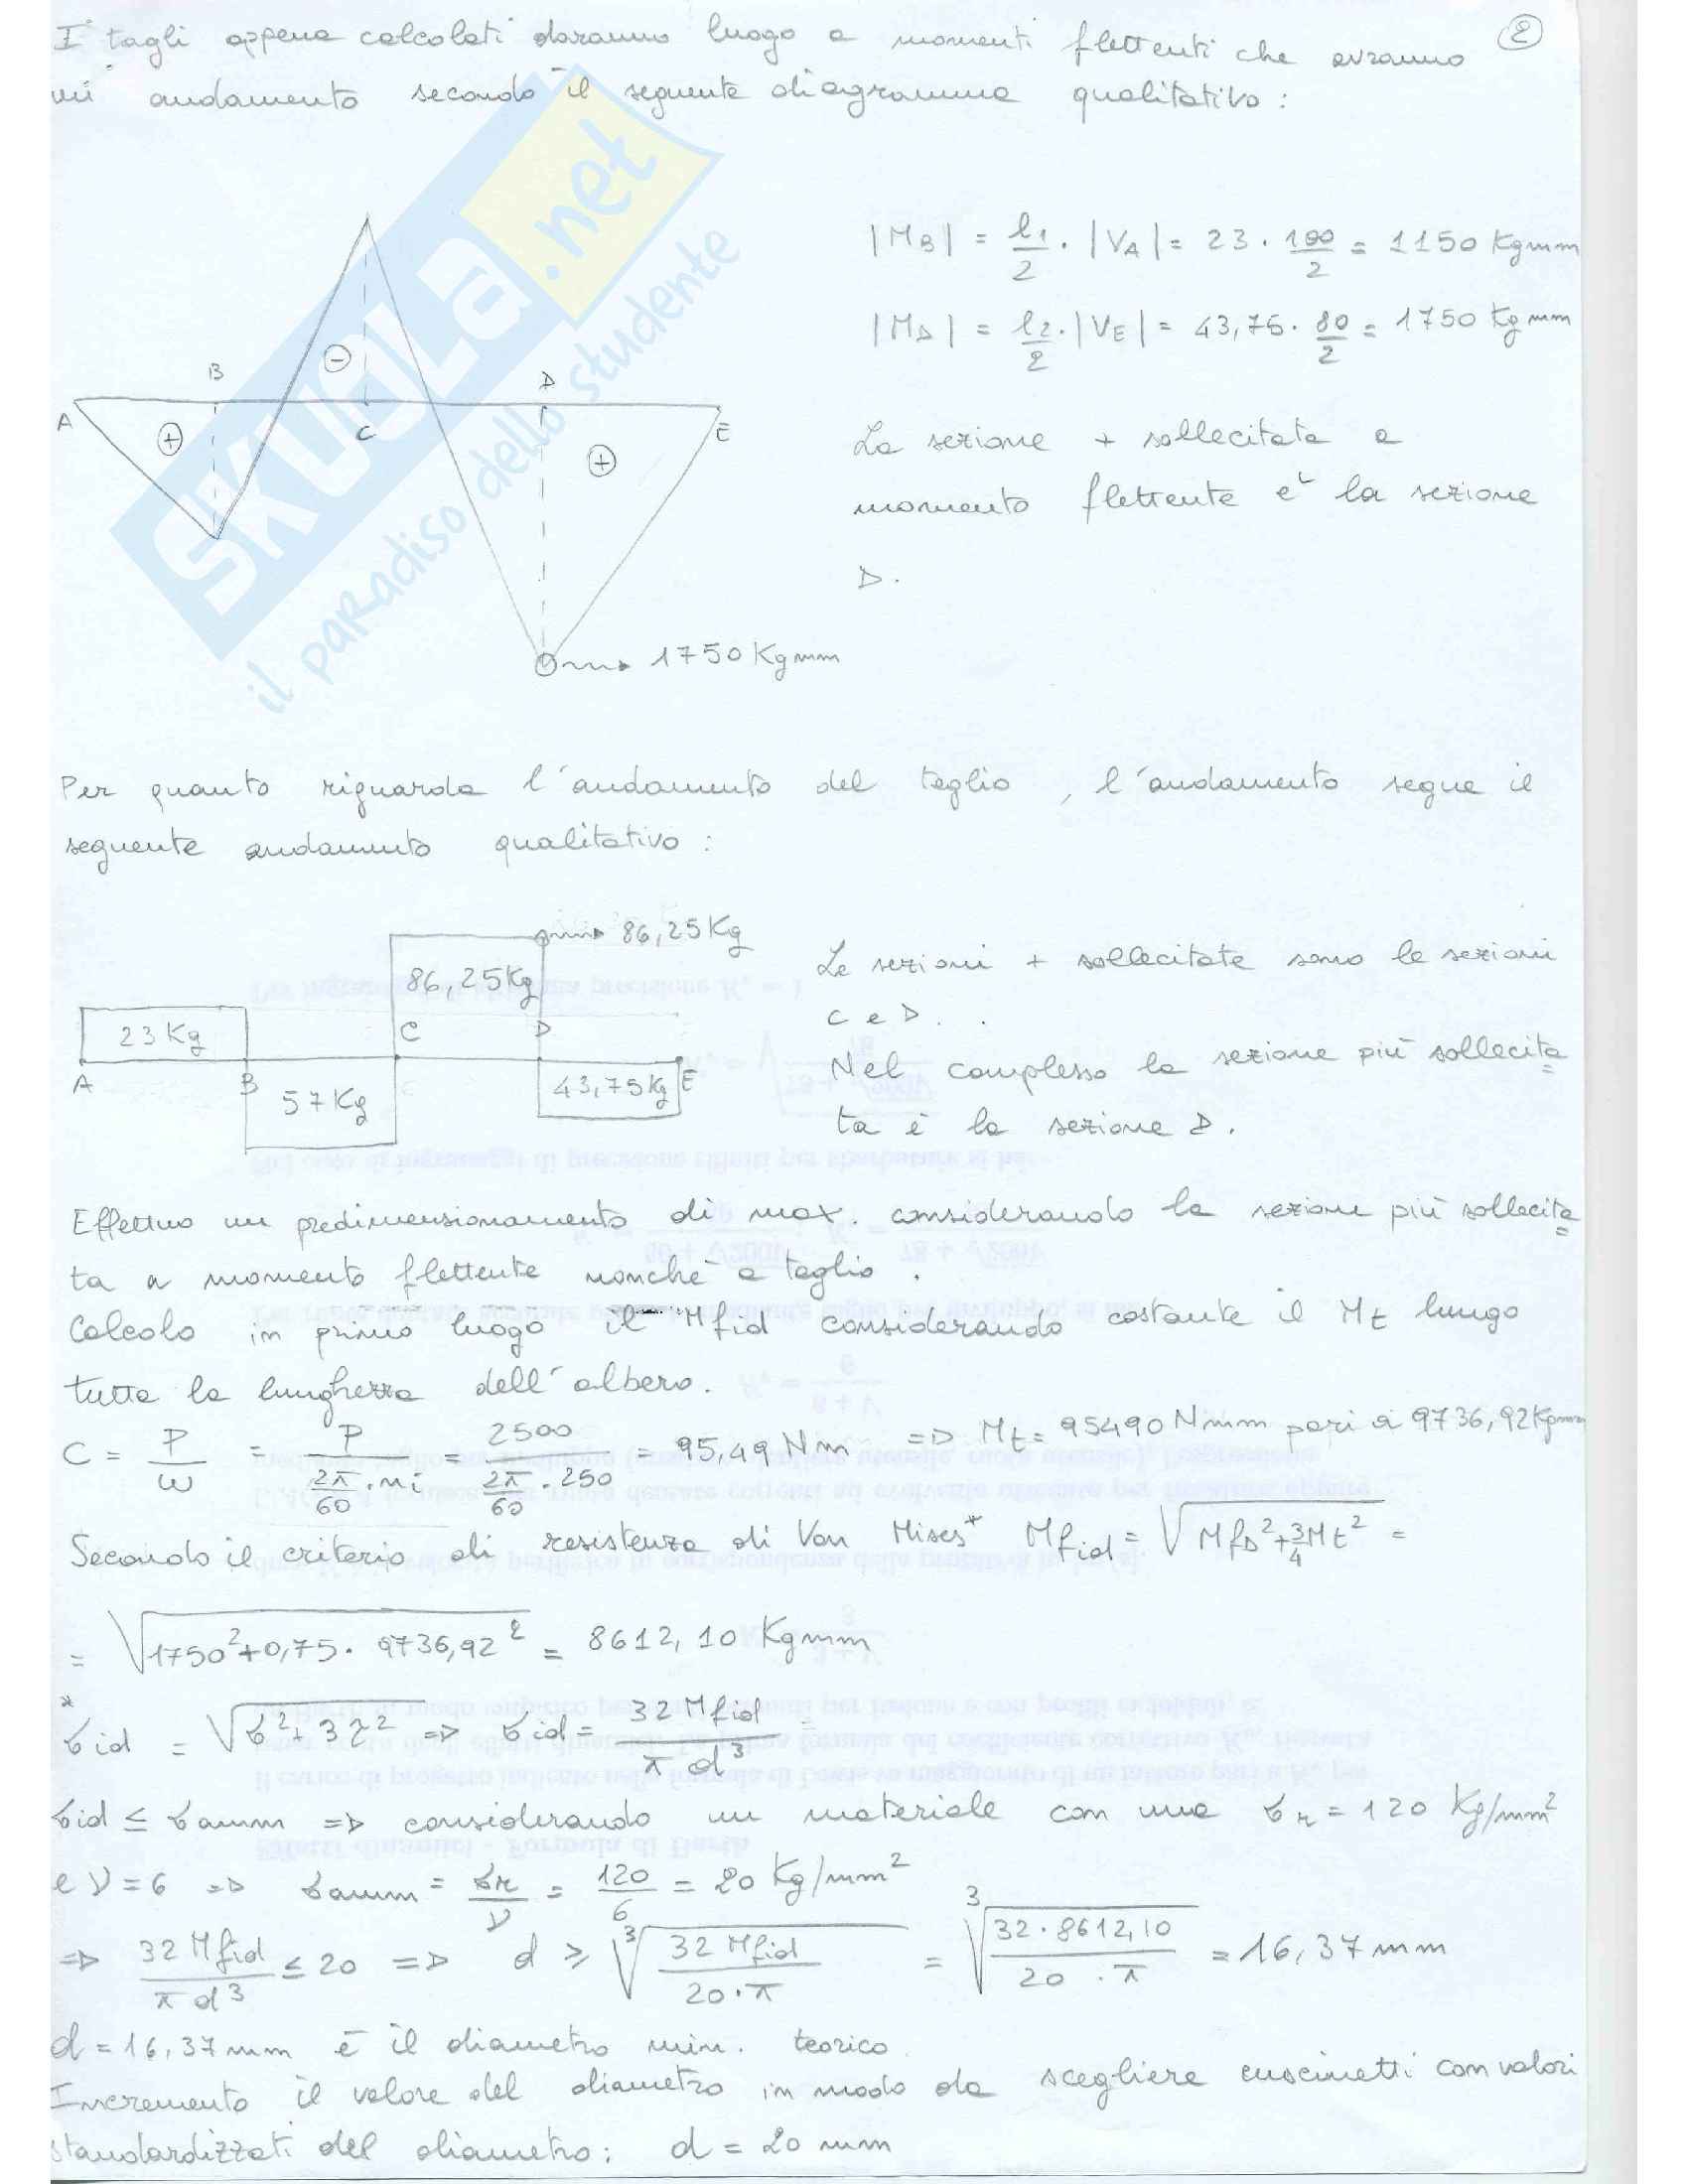 I tagli appena calcolati daranno luogo a momenti flettenti che avranno
un andamento secondo il seguente diagramma qualitativo:
2
|MB| = l1/2 · |VA| = 23 · 100/2 = 1150 Kgmm
|MD| = l2/2 · |VE| = 43,75 · 80/2 = 1750 Kgmm
B
D
A
C
E
+
-
+
La sezione + sollecitata a
momento flettente e' la sezione
D.
1750 Kgmm
SKUOLA.net
il paradiso dello studente
Per quanto riguarda l'andamento del taglio, l'andamento segue il
seguente andamento qualitativo:
86,25 Kg
86,25 Kg
23 Kg
C
D
A
B
57 Kg
43,75 Kg
E
Le sezioni + sollecitate sono le sezioni
C e D.
Nel complesso la sezione più sollecita=
ta è la sezione D.
Effettuo un predimensionamento di max. considerando la sezione più sollecita=
ta a momento flettente nonchè a taglio.
Calcolo in primo luogo il Mfid considerando costante il Mt lungo
tutta la lunghezza dell'albero.
C = P/ω = P/(2π/60 · ni) = 2500/(2π/60 · 250) = 95,49 Nm => Mt = 95490 Nmm pari a 9736,92 Kpmm
Secondo il criterio di resistenza di Von Mises* Mfid = √(MfD² + 3/4 Mt²) =
= √(1750² + 0,75 · 9736,92²) = 8612,10 Kgmm
* σid = √(σ² + 3τ²) => σid = 32 Mfid/(π d³) =
σid ≤ σamm => considerando un materiale con una σr = 120 Kg/mm²
e ν = 6 => σamm = σr/ν = 120/6 = 20 Kg/mm²
=> 32 Mfid/(π d³) ≤ 20 => d ≥ ³√(32 Mfid/(20·π)) = ³√(32 · 8612,10/(20 · π)) = 16,37 mm
d = 16,37 mm è il diametro min. teorico.
Incremento il valore del diametro in modo da scegliere cuscinetti con valori
standardizzati del diametro: d = 20 mm